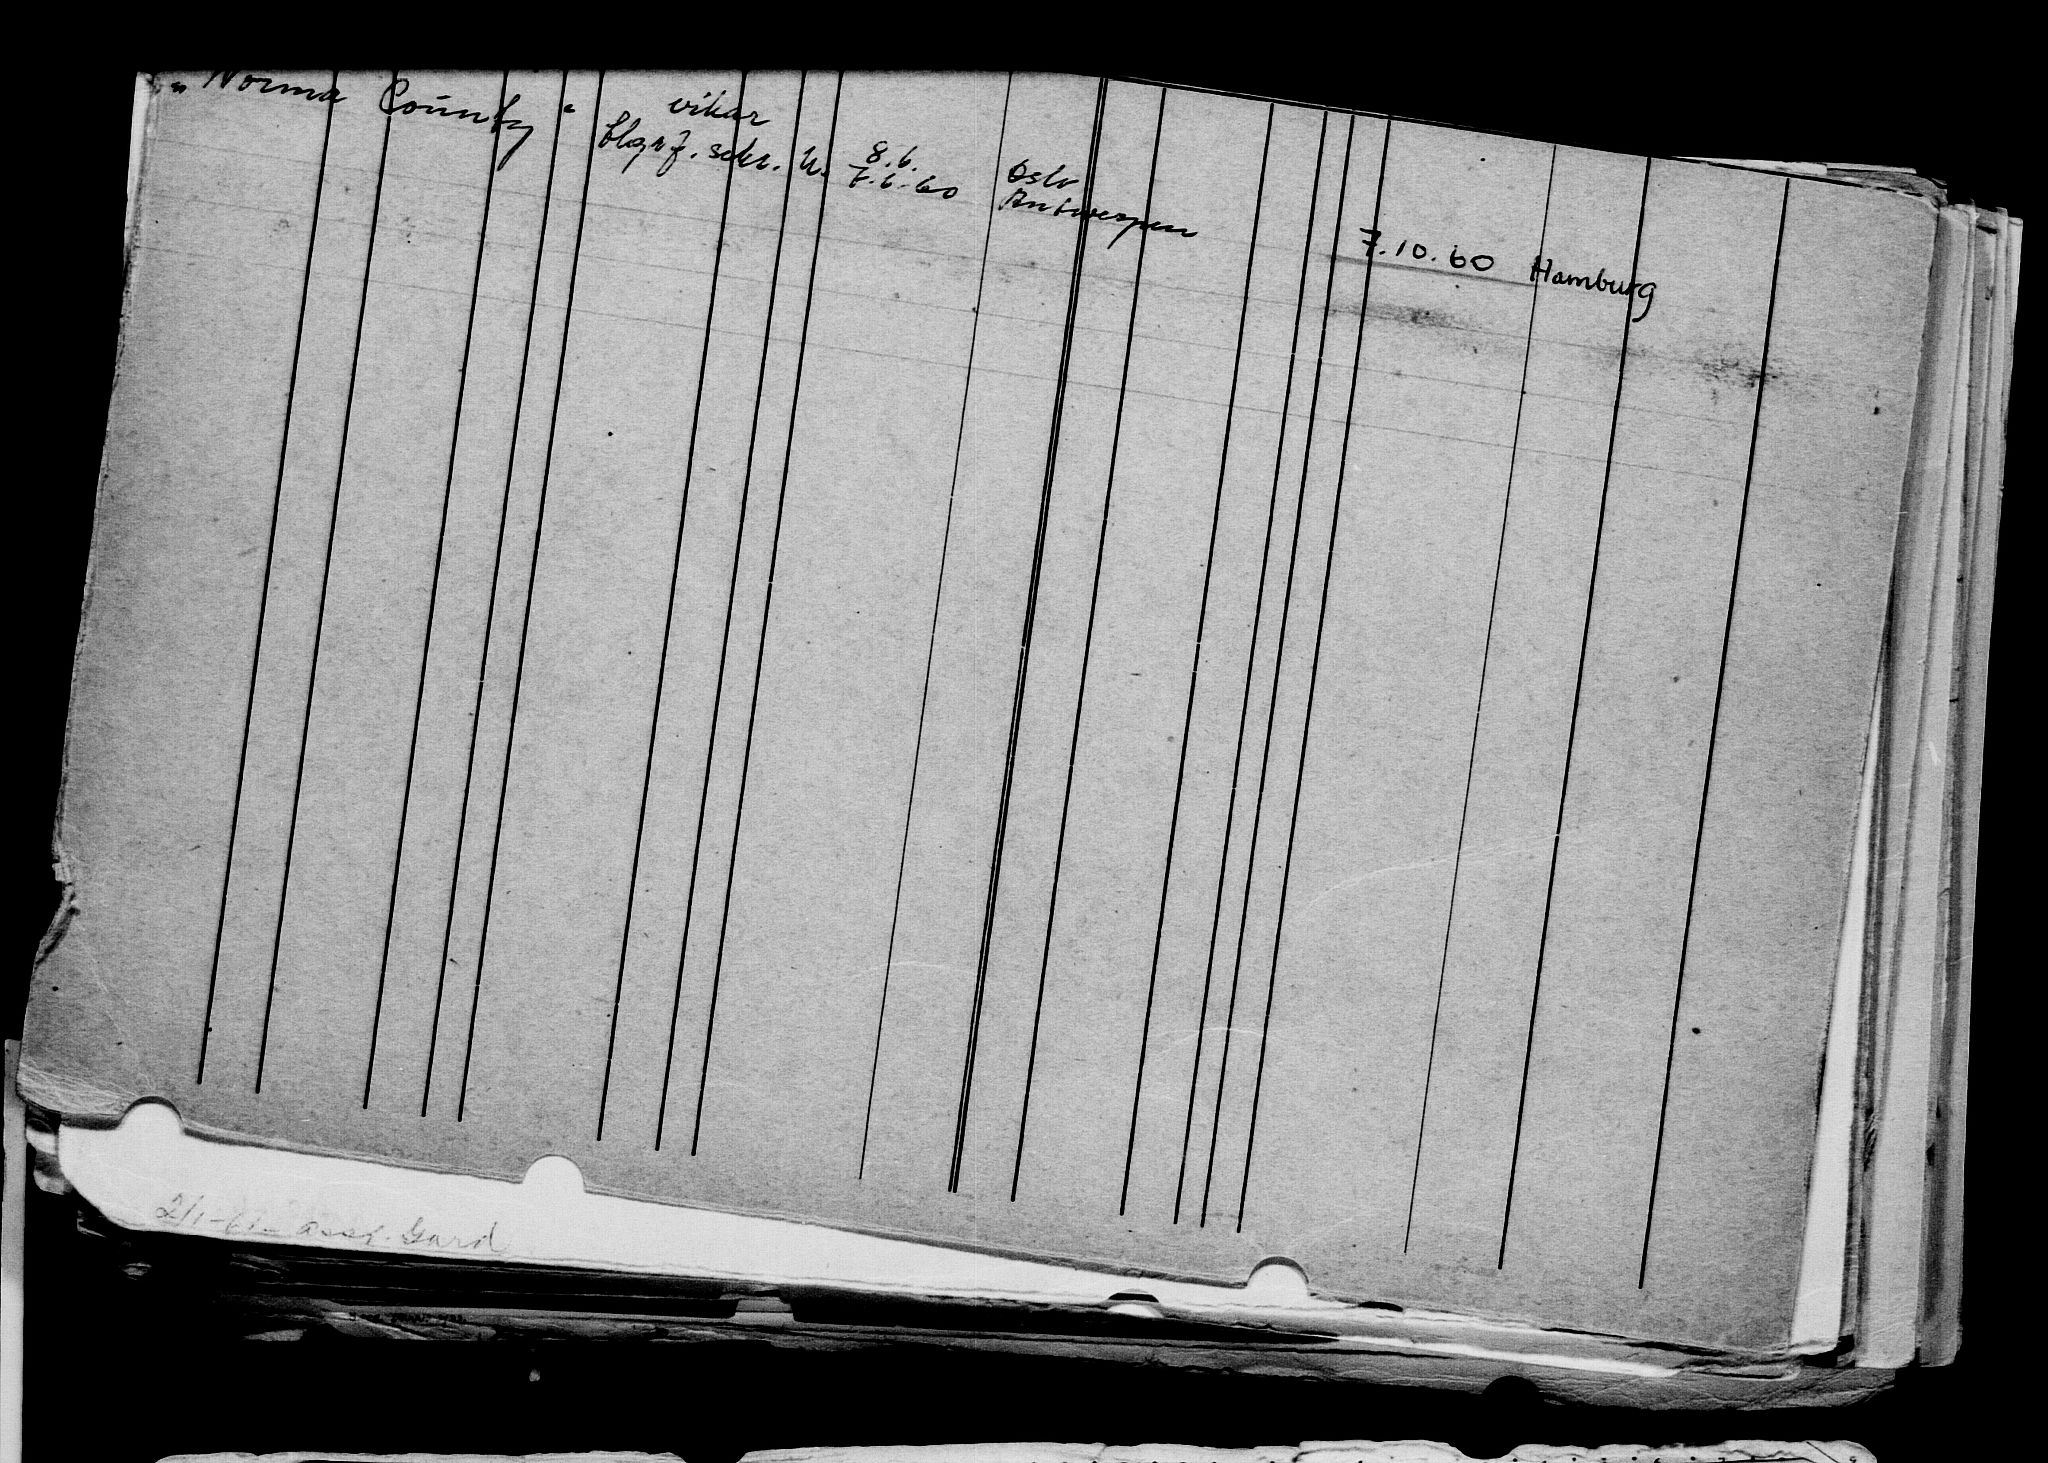 "Norma County"
vikar 8.6. Oslo
tlgrf. sekr. U. 7.6.60 Antwerpen 7.10.60 Hamburg
2/1-61- asst. Gard